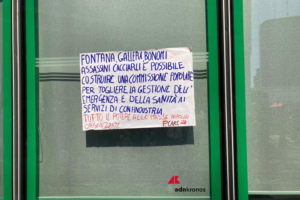 FONTANA, GALLERA, BONOMI
ASSASSINI CACCIARLI È POSSIBILE
COSTRUIRE UNA COMMISSIONE POPOLARE
PER TOGLIERE LA GESTIONE DELL'
EMERGENZA E DELLA SANITÀ AI
SERVIZI DI CONFINDUSTRIA
TUTTO IL POTERE ALLE MASSE
ORGANIZZATE P.CARC
adnkronos